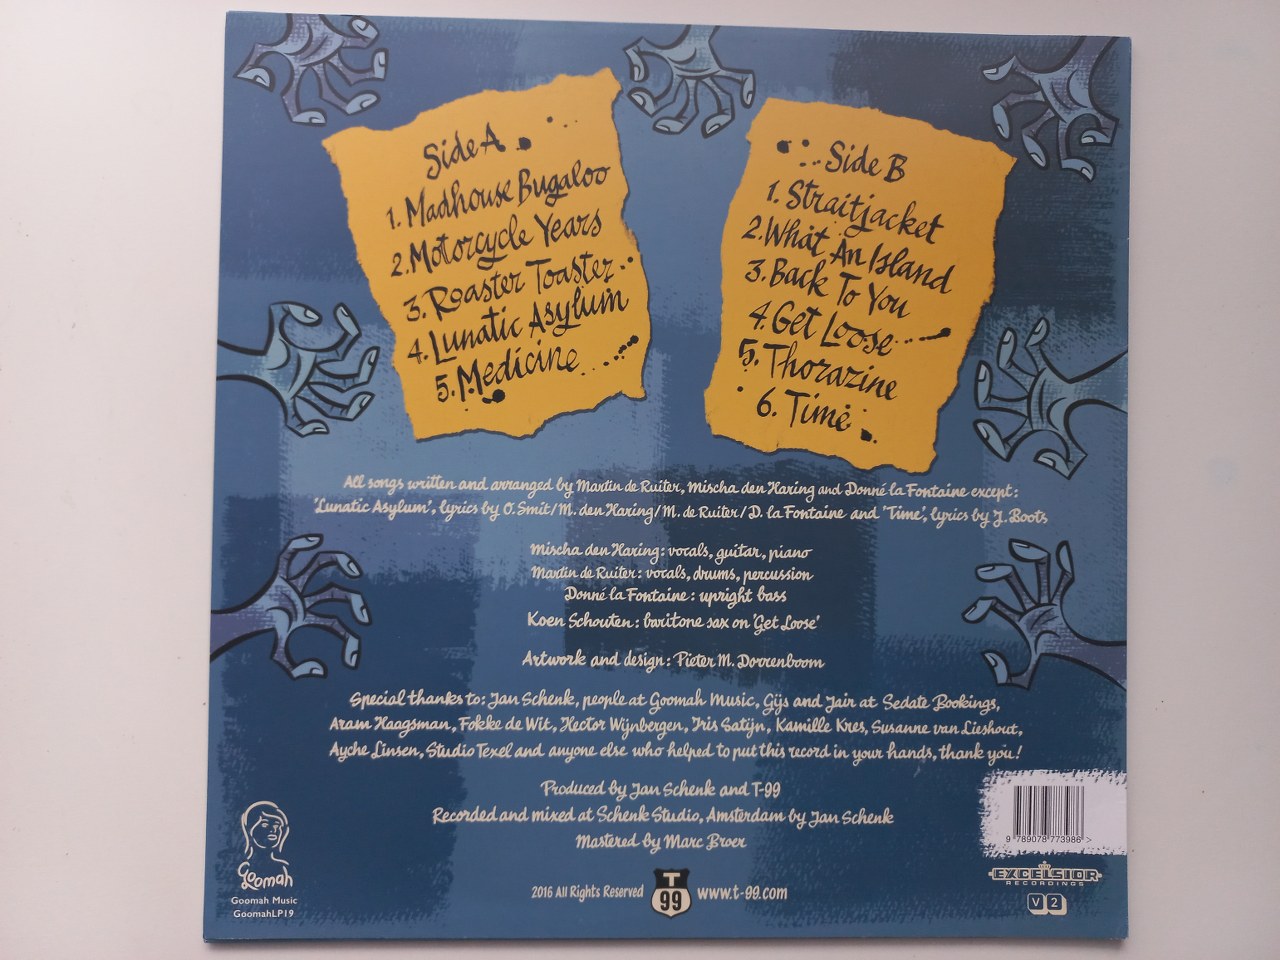 Side A
1. Madhouse Bugaloo
2. Motorcycle Years
3. Roaster Toaster
4. Lunatic Asylum
5. Medicine
Side B
1. Straitjacket
2. What An Island
3. Back To You
4. Get Loose
5. Thorazine
6. Time
All songs written and arranged by Martin de Ruiter, Mischa den Haring and Donné la Fontaine except:
'Lunatic Asylum', lyrics by O. Smit/M. den Haring/M. de Ruiter/D. la Fontaine and 'Time', lyrics by J. Boots
Mischa den Haring: vocals, guitar, piano
Martin de Ruiter: vocals, drums, percussion
Donné la Fontaine: upright bass
Koen Schouten: baritone sax on 'Get Loose'
Artwork and design: Pieter M. Dorrenboom
Special thanks to: Jan Schenk, people at Goomah Music, Gijs and Jair at Sedate Bookings,
Aram Haagsman, Fokke de Wit, Hector Wijnbergen, Iris Satijn, Kamille Kres, Susanne van Lieshout,
Ayche Linsen, Studio Texel and anyone else who helped to put this record in your hands, thank you!
Produced by Jan Schenk and T-99
Recorded and mixed at Schenk Studio, Amsterdam by Jan Schenk
Mastered by Marc Broer
Goomah
Goomah Music
GoomahLP19
2016 All Rights Reserved
T
99
www.t-99.com
9 789078 773986 >
EXCELSIOR
RECORDINGS
V2